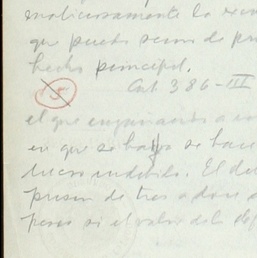 maliciosamente la
que pueda servir de
hecho principal.
15 Art 386-III
el que engañando a
en que se haya se hace
lucro indebido. El
prision de tres a doce
pesos si el valor de lo